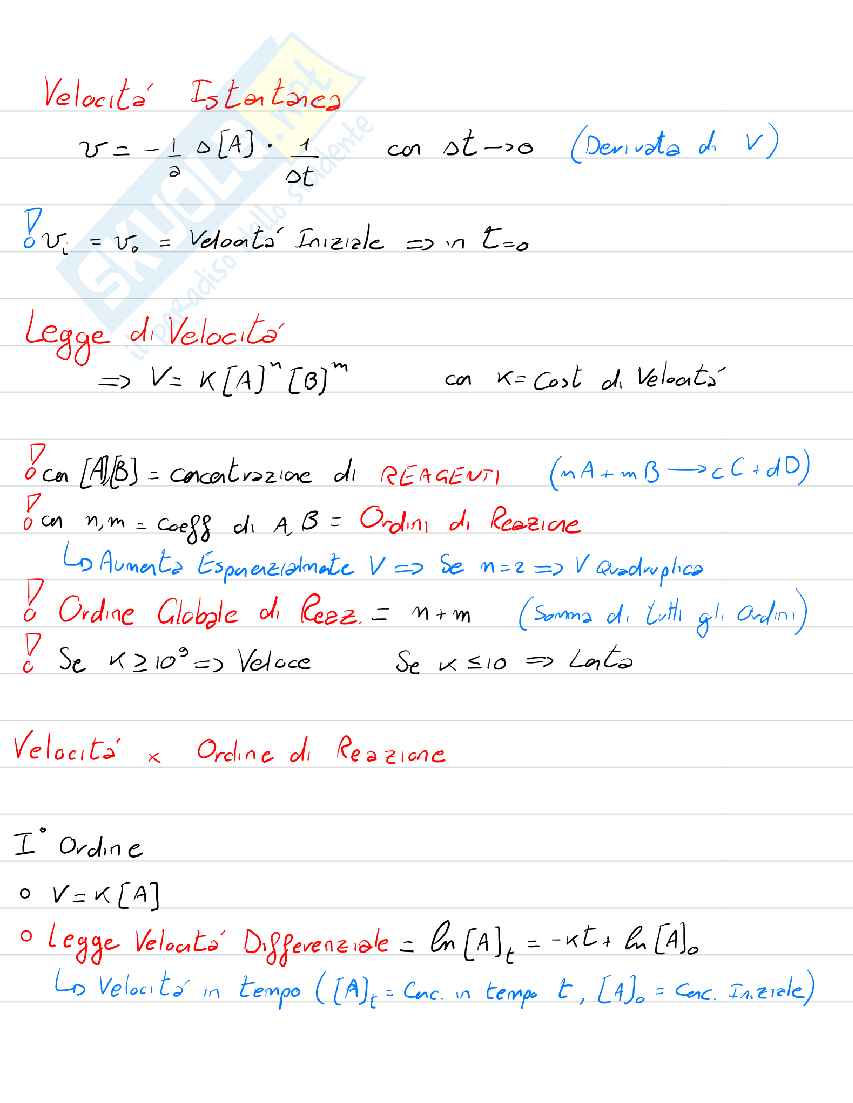 Velocitá Istantanea
v = - 1/a Δ[A] · 1/Δt con Δt → 0 (Derivata di V)
! vᵢ = v₀ = Velocitá Iniziale => in t=0
Legge di Velocitá
=> V = K[A]ⁿ [B]ᵐ con K = Cost di Velocitá
! con [A],[B] = concentrazione di REAGENTI (nA + mB → cC + dD)
! con n, m = coeff di A, B = Ordini di Reazione
↳ Aumenta Esponenzialmente V => Se n=2 => V Quadruplica
! Ordine Globale di Reaz. = n+m (Somma di tutti gli Ordini)
! Se K ≥ 10⁹ => Veloce Se K ≤ 10 => Lenta
Velocitá x Ordine di Reazione
I° Ordine
○ V = K[A]
○ Legge Velocitá Differenziale = ln[A]ₜ = -Kt + ln[A]₀
↳ Velocitá in tempo ([A]ₜ = Conc. in tempo t, [A]₀ = Conc. Iniziale)
SKUOLA.net
il paradiso dello studente